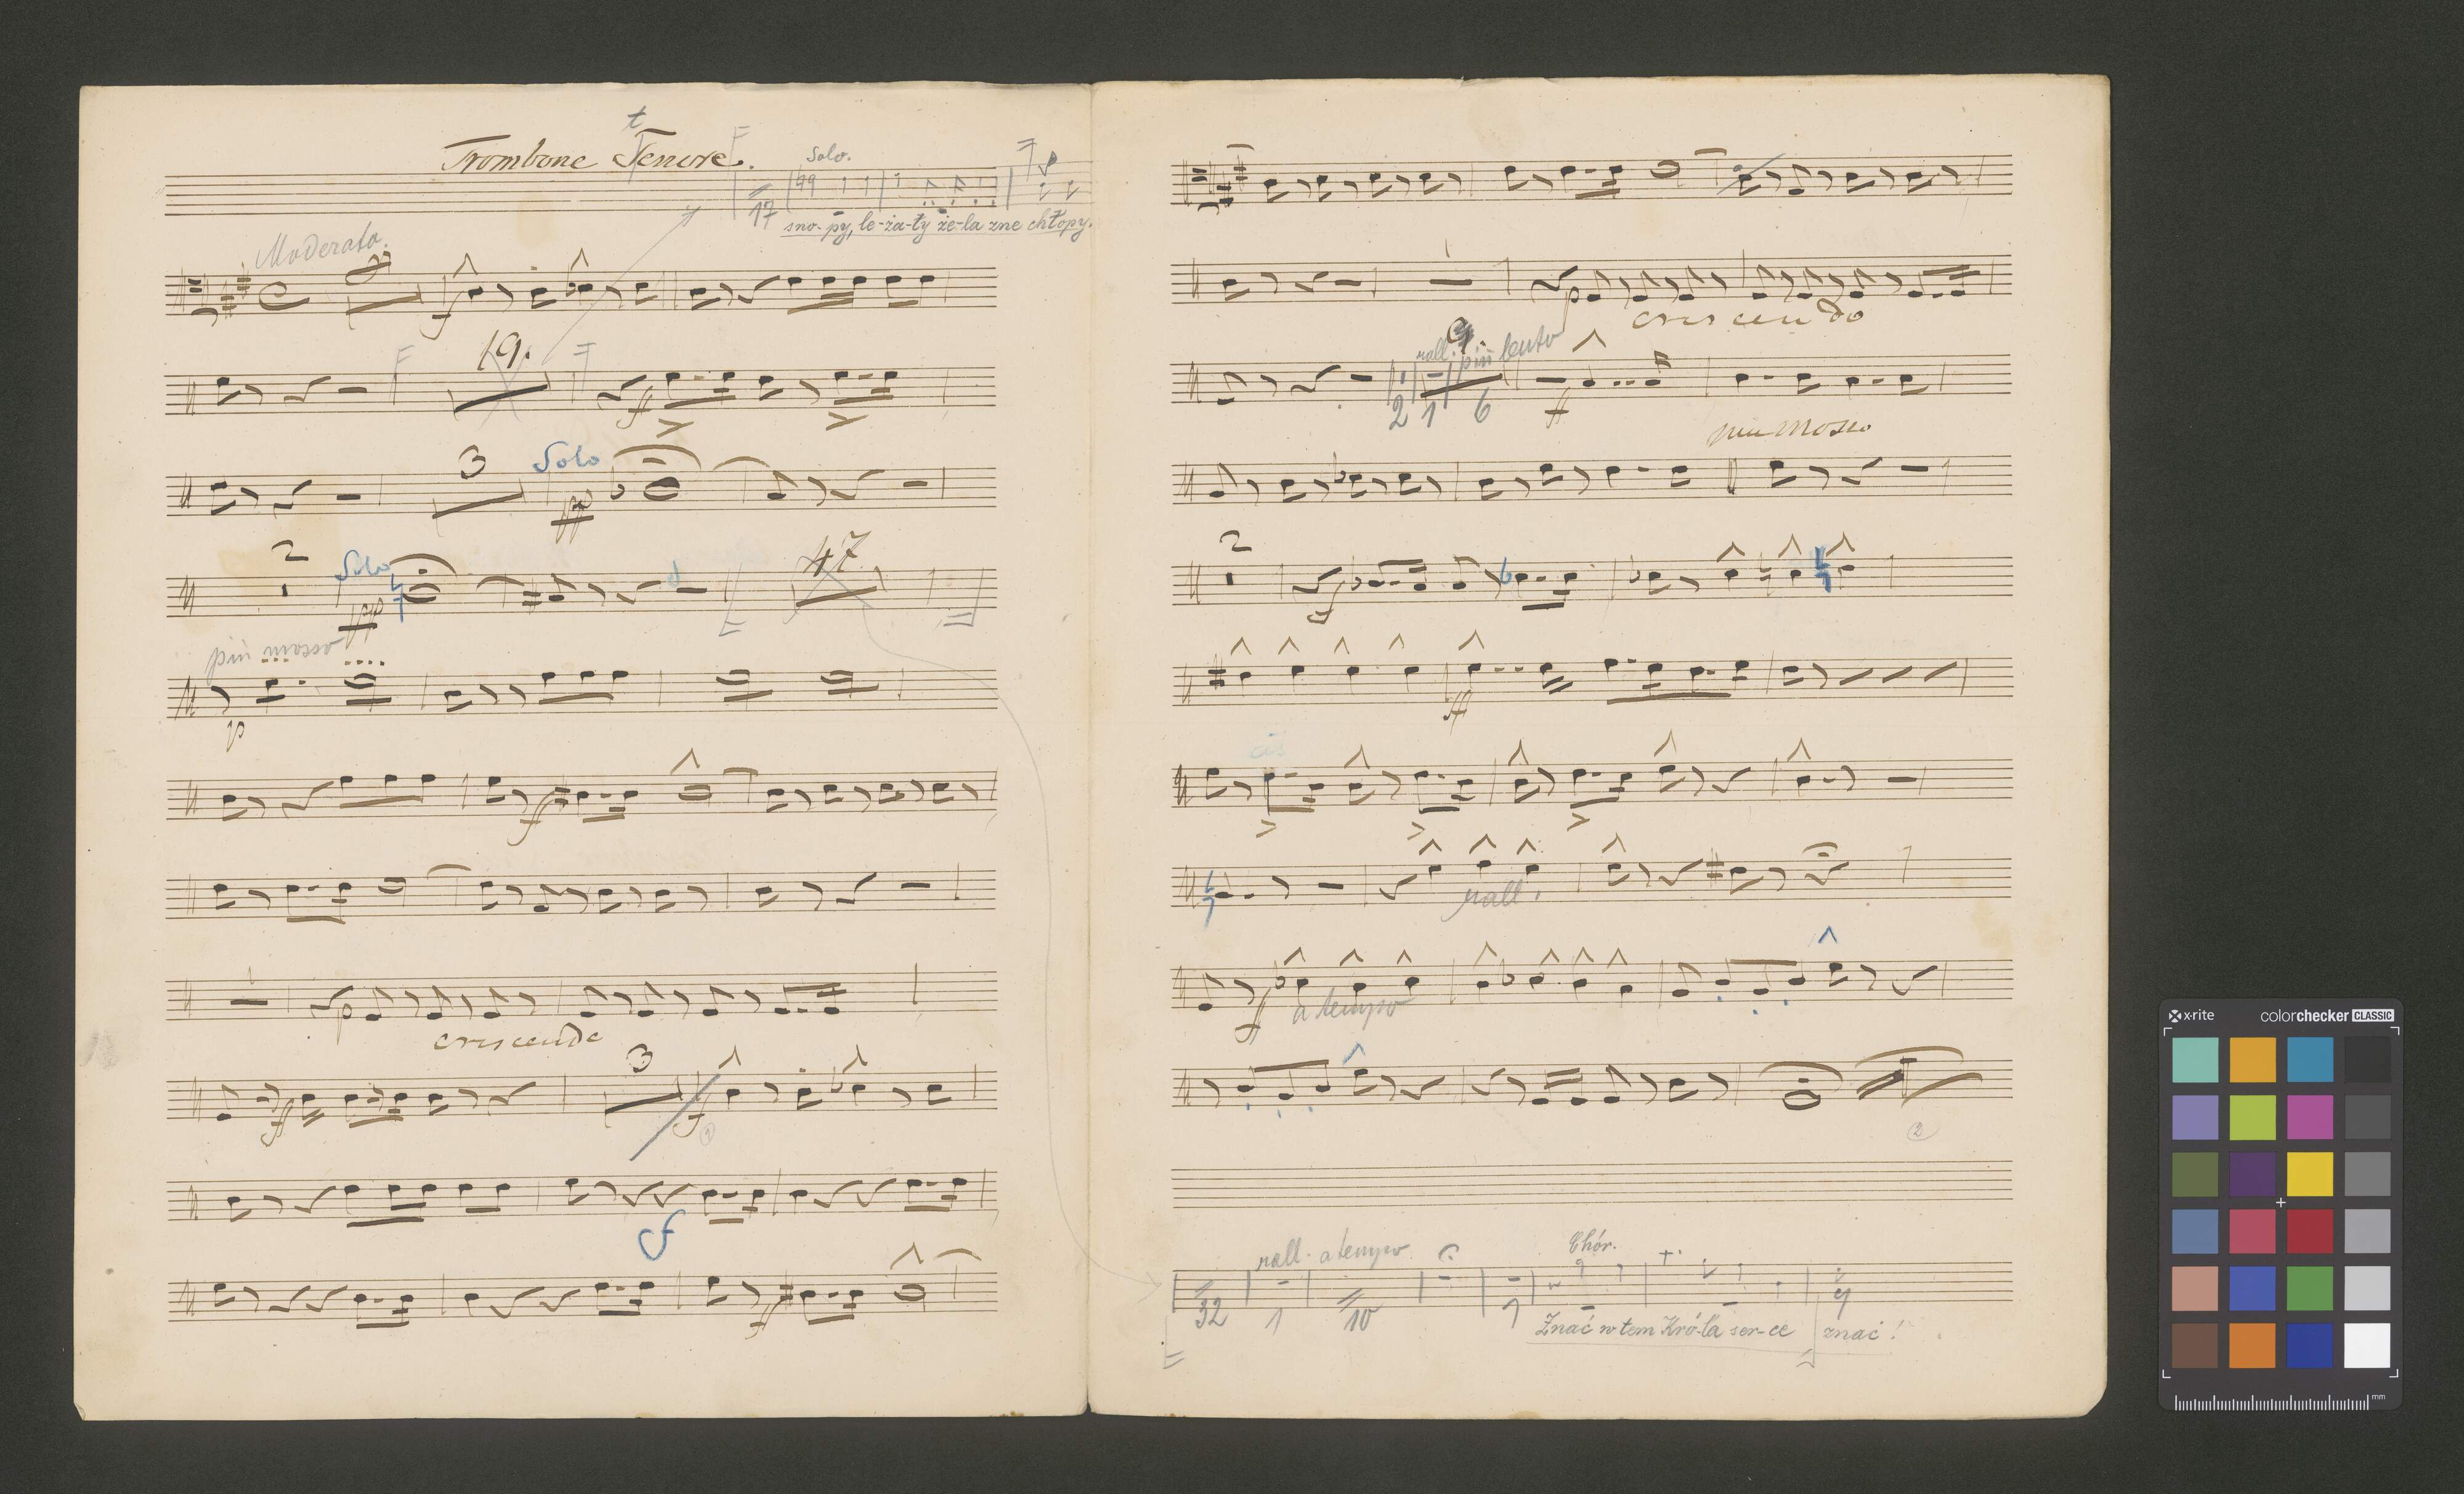 t
Trombone Tenore.
Solo.
17
sno-py, le-ża-ły że-la zne chłopy.
Moderato.
f
19.
ff
3 Solo
pp
2 Solo 47.
pp
più mosso
p
ff
p
crescendo
3
ff f
1
f
ff
p
crescendo
rall. 9. più lento
2 1 6 ff
piu mosso
2
f
ff
cis
rall.
ff a tempo
2
rall. a tempo Chór.
32 1 10 1
Znać w tem Kró-la ser-ce znać!
x-rite colorchecker CLASSIC
mm